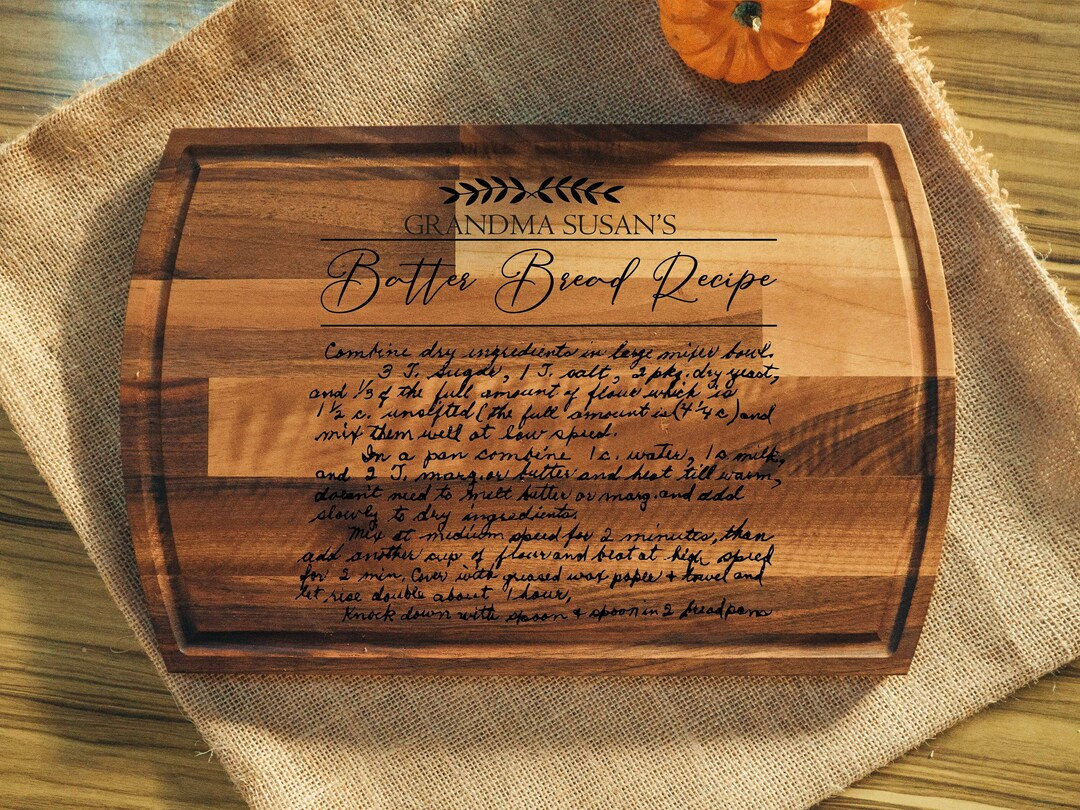 GRANDMA SUSAN'S
Batter Bread Recipe
Combine dry ingredients in large mixer bowl.
3 T. sugar, 1 T. salt, 2 pkg. dry yeast,
and 1/3 of the full amount of flour which is
1 1/2 c. unsifted (the full amount is (4 1/4 c) and
mix them well at low speed.
In a pan combine 1 c. water, 1 c milk,
and 2 T. marg. or butter and heat till warm,
doesn't need to melt butter or marg. and add
slowly to dry ingredients.
Mix at medium speed for 2 minutes, than
add another cup of flour and beat at high speed
for 2 min. Cover with greased wax paper + towel and
let rise double about 1 hour,
Knock down with spoon & spoon in 2 bread pans